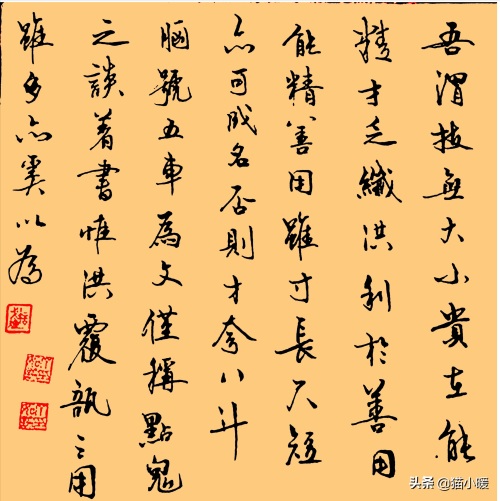 吾謂技無大小貴在能
精才乏纖洪利於善用
能精善用雖寸長尺短
亦可成名否則才夸八斗
胸號五車為文僅稱點鬼
之談着書惟洪覆瓿之用
雖多亦奚以為
头条 @猫小暖